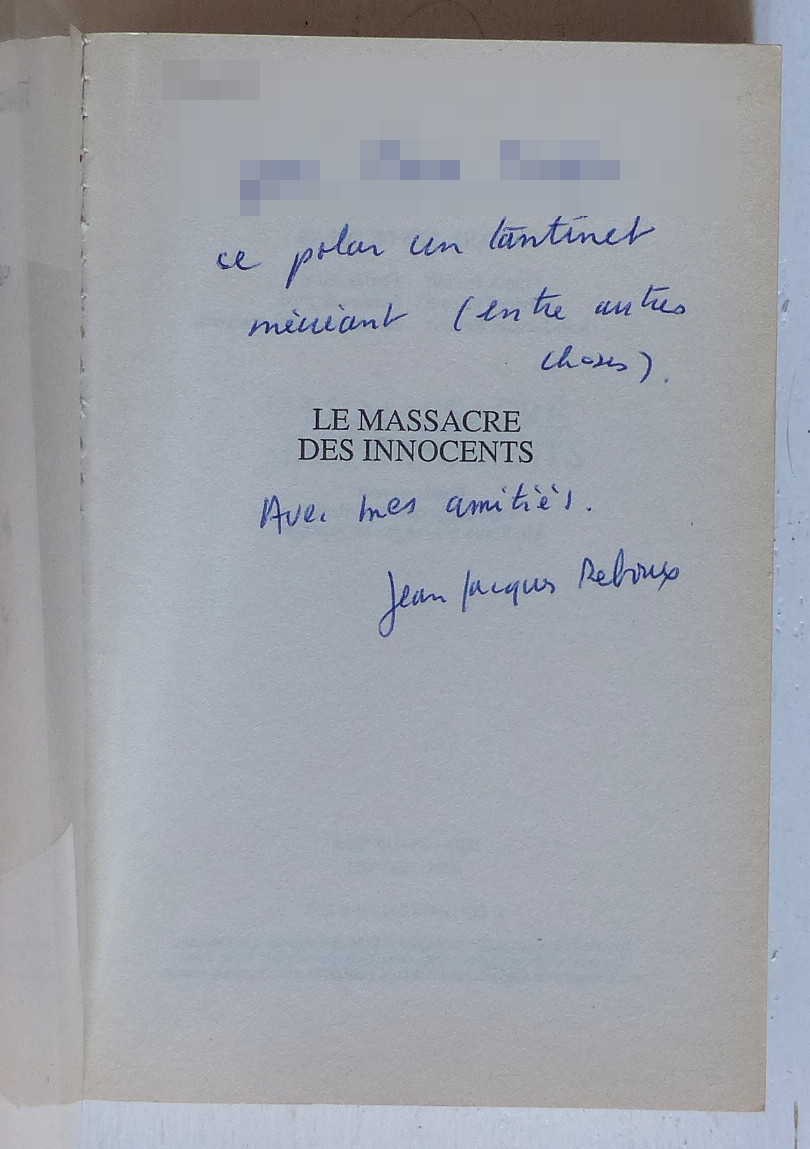 ce polar un tantinet
mécréant (entre autres
choses).
LE MASSACRE
DES INNOCENTS
Avec mes amitiés.
Jean Jacques Reboux